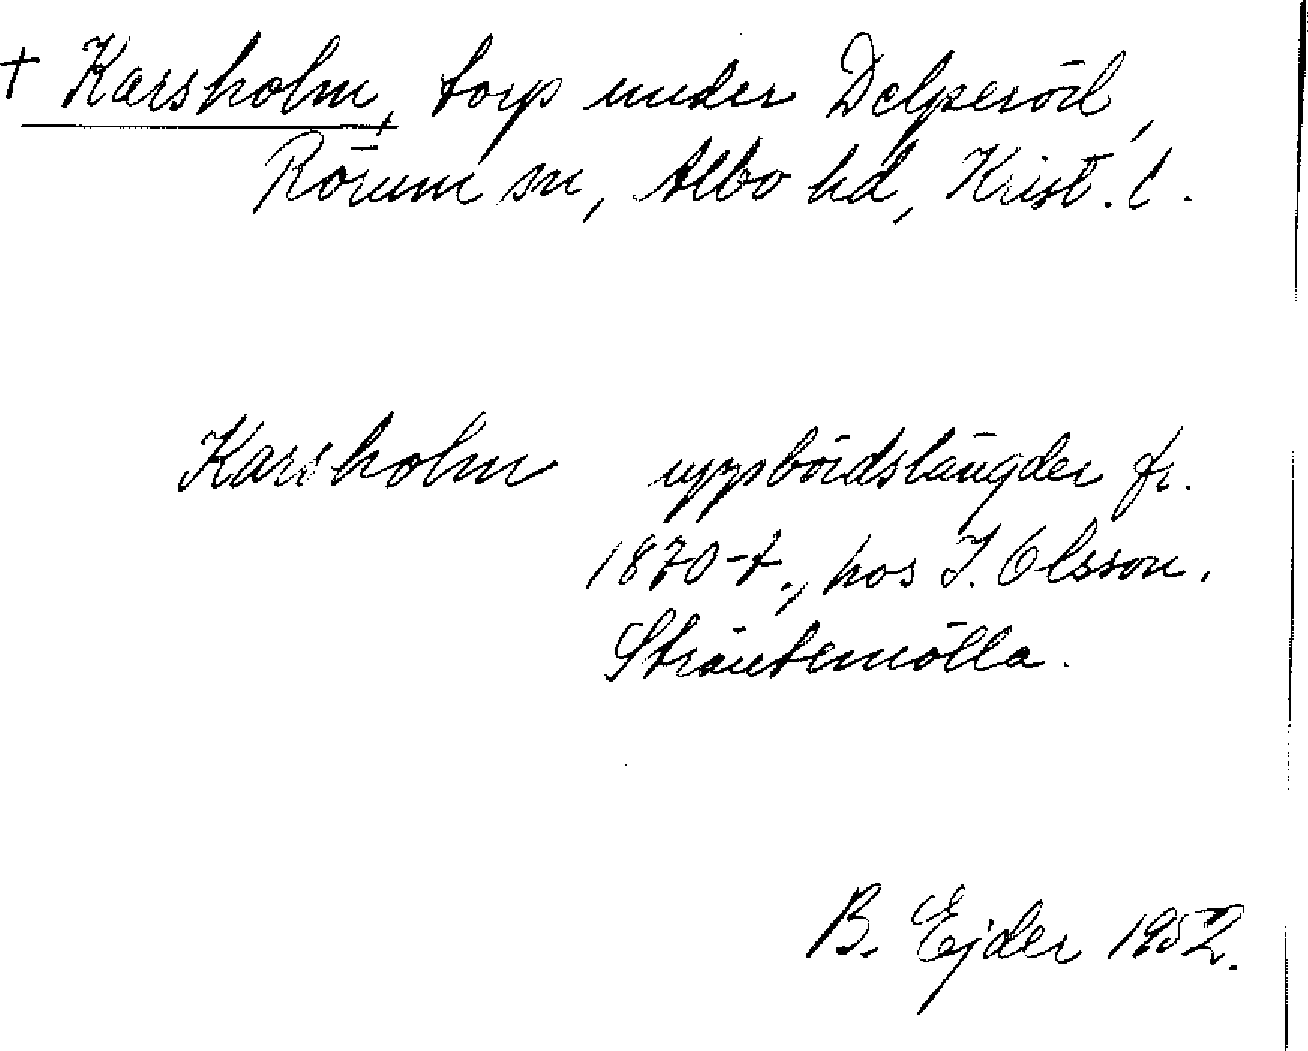 † Karsholm, torp under Delperöd,
Rörum sn, Albo hd, Krist. l.
Karsholm uppbördslängder fr.
1870-t., hos I. Olsson.
Sträntemölla.
B. Ejder 1952.